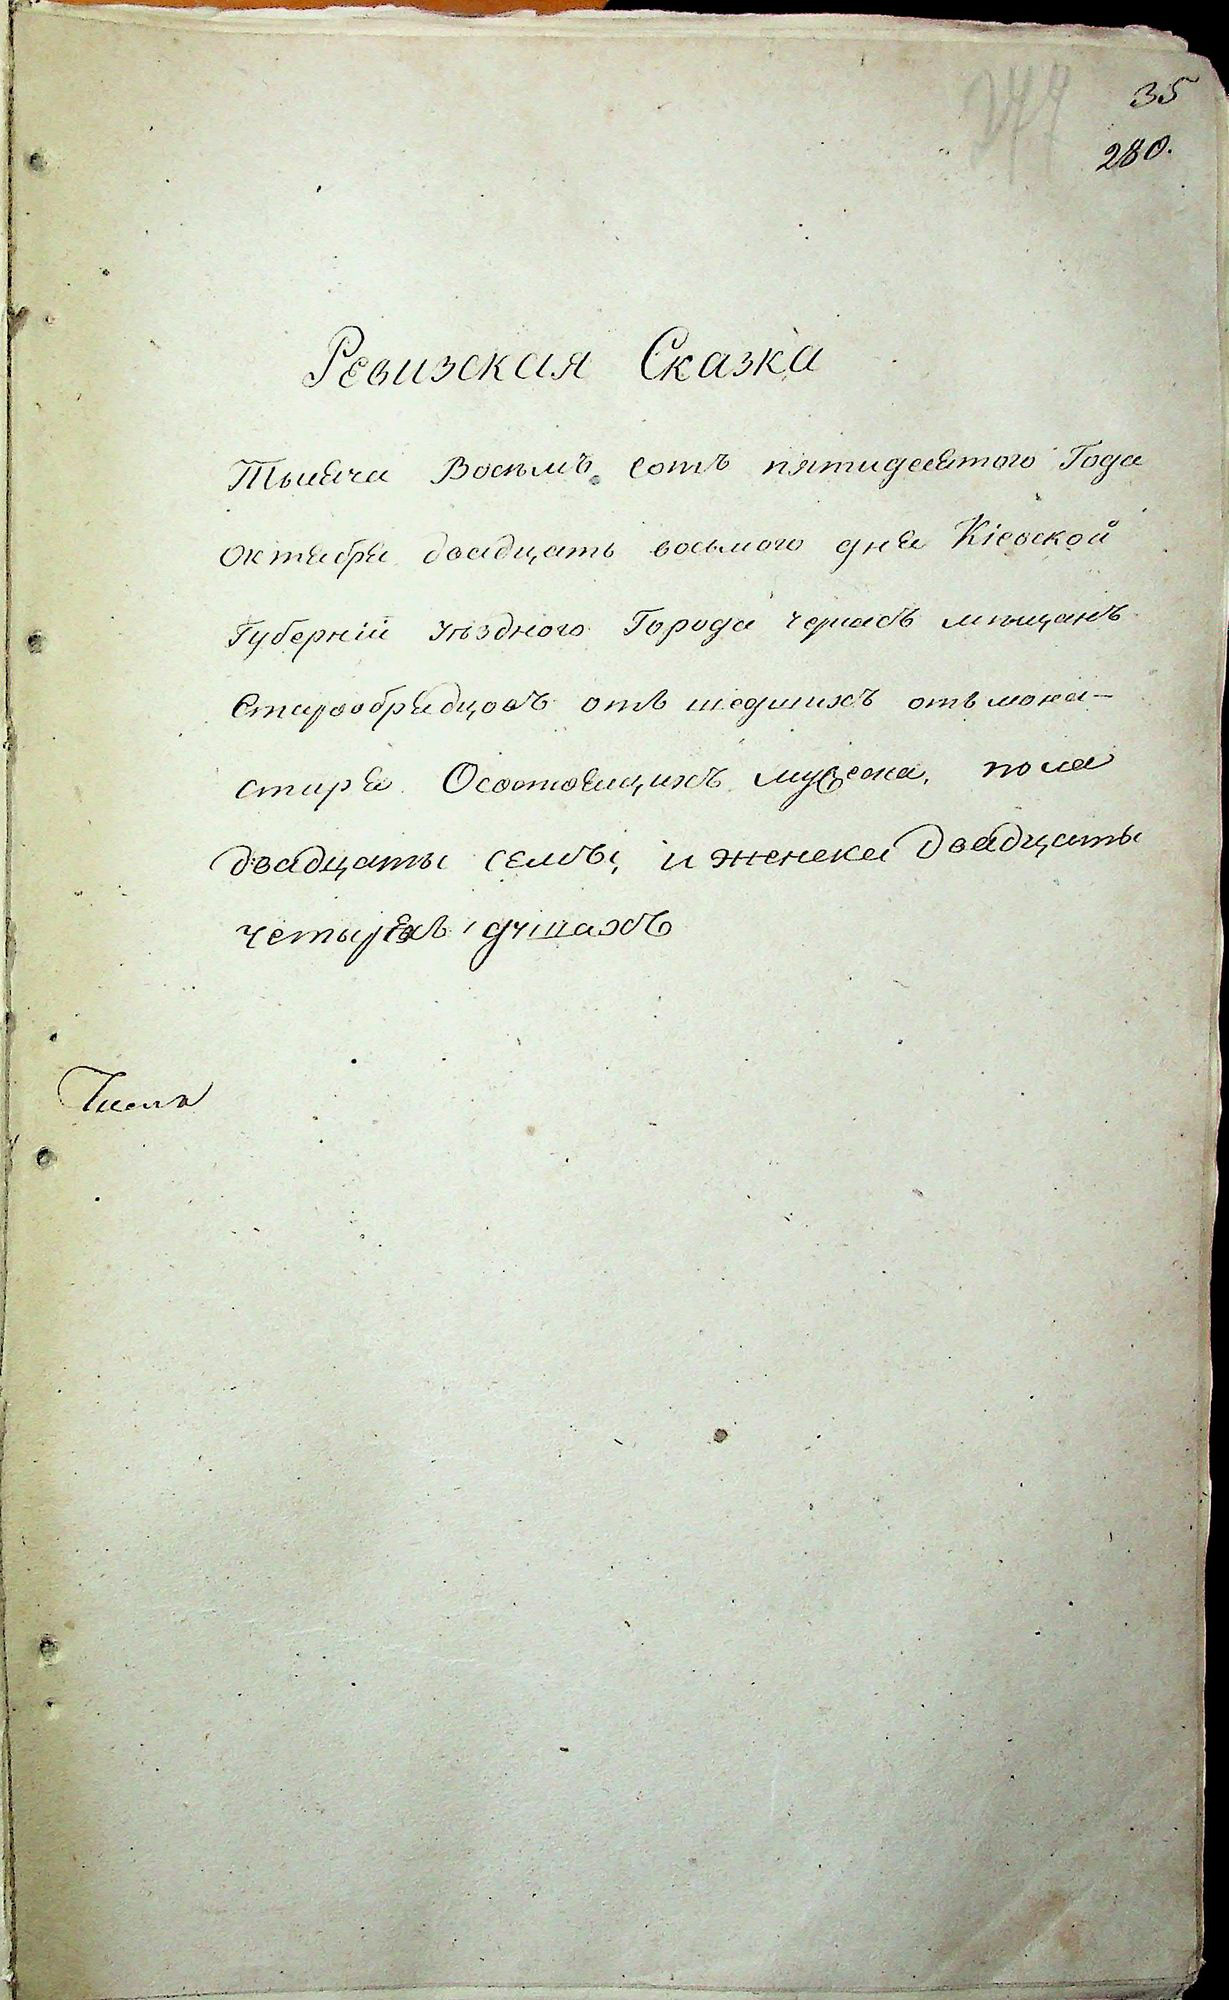 277
35
280.
Ревизская Сказка
Тысяча Восемъ сотъ пятидесятого Года
октября двадцать восьмого дня Кіевской
Губерніи уѣздного Города Черкасъ мѣщанъ
Старообрядцовъ отъ шедшихъ отъ мона-
стиря Осостоящихъ мужеска, пола
двадцаты семы, и женска двадцаты
четырехъ душахъ